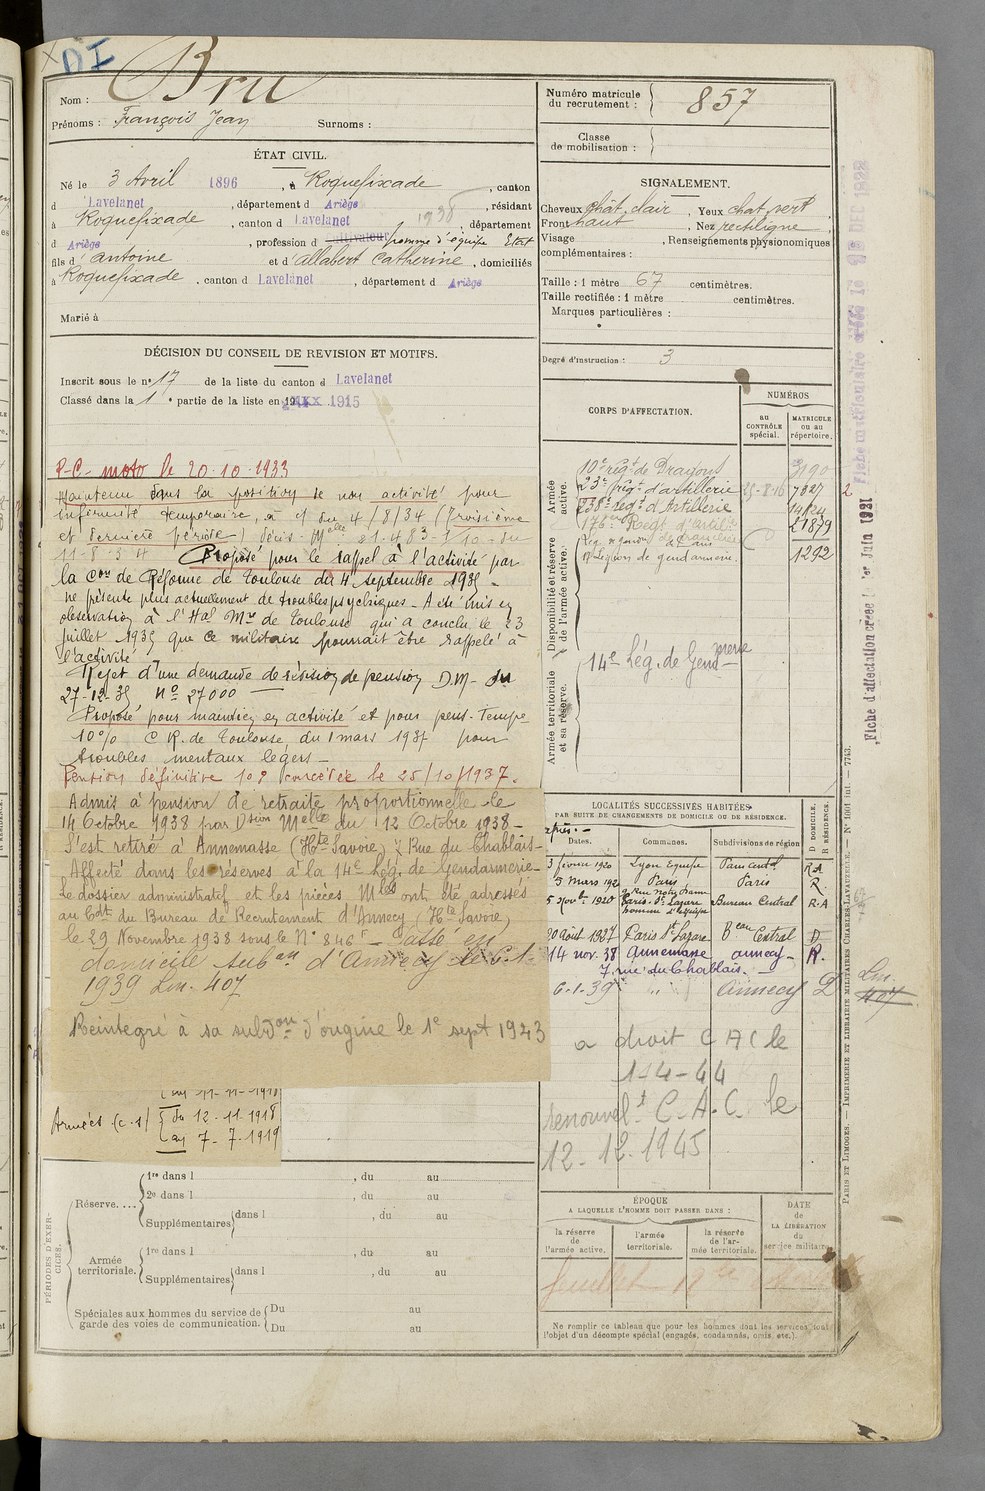 DI
Nom : Bru
Prénoms : François Jean Surnoms :
ÉTAT CIVIL.
Né le 3 Avril 1896, à Roquefixade, canton
d Lavelanet, département d Ariège, résidant
à Roquefixade, canton d Lavelanet 1938, département
d Ariège, profession d cultivateur homme d'équipe Etat
fils d' Antoine et d' Allabert Catherine, domiciliés
à Roquefixade, canton d Lavelanet, département d Ariège
Marié à
DÉCISION DU CONSEIL DE REVISION ET MOTIFS.
Inscrit sous le n° 17 de la liste du canton d Lavelanet
Classé dans la 1e partie de la liste en 1915
P-C- moto le 20.10.1933
Maintenu dans la position de non activité pour
infirmité temporaire, à c/ du 4/8/34 (Troisième
et dernière période) Décis. Melle : 21.483-3/10-du
11-8-34 Proposé pour le rappel à l'activité par
la Con de Réforme de Toulouse du 4 septembre 1935 -
ne présente plus actuellement de troubles psychiques - A été mis en
observation à l'Hal Mre de Toulouse qui a conclu le 23
juillet 1935 que ce militaire pourrait être rappelé à
l'activité
Rejet d'une demande de révision de pension D.M- du
27-12-35 N° 27000
Proposé pour maintien en activité et pour pens. Tempe
10% C R. de Toulouse du 1 mars 1937 pour
troubles mentaux légers -
Pension définitive 10% concédée le 25/10/1937.
Admis à pension de retraite proportionnelle le
14 Octobre 1938 par Dsion Melle du 12 Octobre 1938 -
S'est retiré à Annemasse (Hte Savoie) 7 Rue du Chablais -
Affecté dans les réserves à la 14e Lég. de Gendarmerie -
Le dossier administratif et les pièces Mles ont été adressés
au Cdt du Bureau de Recrutement d'Annecy (Hte Savoie)
le 29 Novembre 1938 sous le N° 846 - Passé en
domicile subon d'Annecy le 6.1.
1939 Lm. 407
Réintegré à sa subdon d'origine le 1e sept 1943
au 11-11-1918
Armées (c.s) du 12.11.1918
au 7-7-1919
PÉRIODES D'EXERCICES.
Réserve....
1re dans l , du au
2e dans l , du au
Supplémentaires dans l , du au
Armée territoriale.
1re dans l , du au
Supplémentaires dans l , du au
Spéciales aux hommes du service de garde des voies de communication.
Du au
Du au
Numéro matricule du recrutement : 857
Classe de mobilisation :
SIGNALEMENT.
Cheveux chât. clair, Yeux chat. vert
Front haut, Nez rectiligne
Visage , Renseignements physionomiques
complémentaires :
Taille : 1 mètre 67 centimètres.
Taille rectifiée : 1 mètre centimètres.
Marques particulières :
Degré d'instruction : 3
CORPS D'AFFECTATION.
NUMÉROS
au CONTRÔLE spécial.
MATRICULE ou au répertoire.
Armée active.
10e régt de Dragons
23e régt d'artillerie 7827
238e régt d'Artillerie 14124
176e Regt d'artie 21879
Disponibilité et réserve de l'armée active.
Légion de gendarmerie. 1292
Armée territoriale et sa réserve.
14e Lég. de Gendmerie
LOCALITÉS SUCCESSIVES HABITÉES
PAR SUITE DE CHANGEMENTS DE DOMICILE OU DE RÉSIDENCE.
Dates. Communes. Subdivisions de région D DOMICILE. R RÉSIDENCE.
3 février 1920 Lyon Equipe
5 Mars 192 Paris Paris R.
9 Rue Notre Dame
5 Novb. 1920 Paris. St Lazare Bureau Central R.A
homme d'équipe
20 Août 1927 Paris St Lazare Beau Central D
14 nov. 38 Annemasse annecy - R.
7, rue du Chablais. -
6-1-39 " " annecy D
Lm. 407
a droit C A C le
1-4-44
renouvelt C-A-C. le
12.12.1945
ÉPOQUE
A LAQUELLE L'HOMME DOIT PASSER DANS :
la réserve de l'armée active.
l'armée territoriale.
la réserve de l'armée territoriale.
DATE de LA LIBÉRATION du service militaire
Ne remplir ce tableau que pour les hommes dont les services font
l'objet d'un décompte spécial (engagés, condamnés, omis, etc.).
Fiche d'affectation créée le 1er Juin 1921
PARIS ET LIMOGES. — IMPRIMERIE ET LIBRAIRIE MILITAIRES CHARLES-LAVAUZELLE. — N° 1001 int. — 7743.